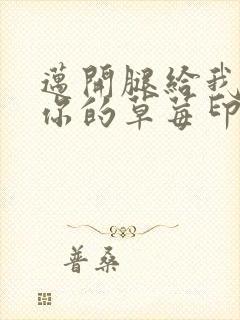 邁開腿給我
你的草莓印
普桑